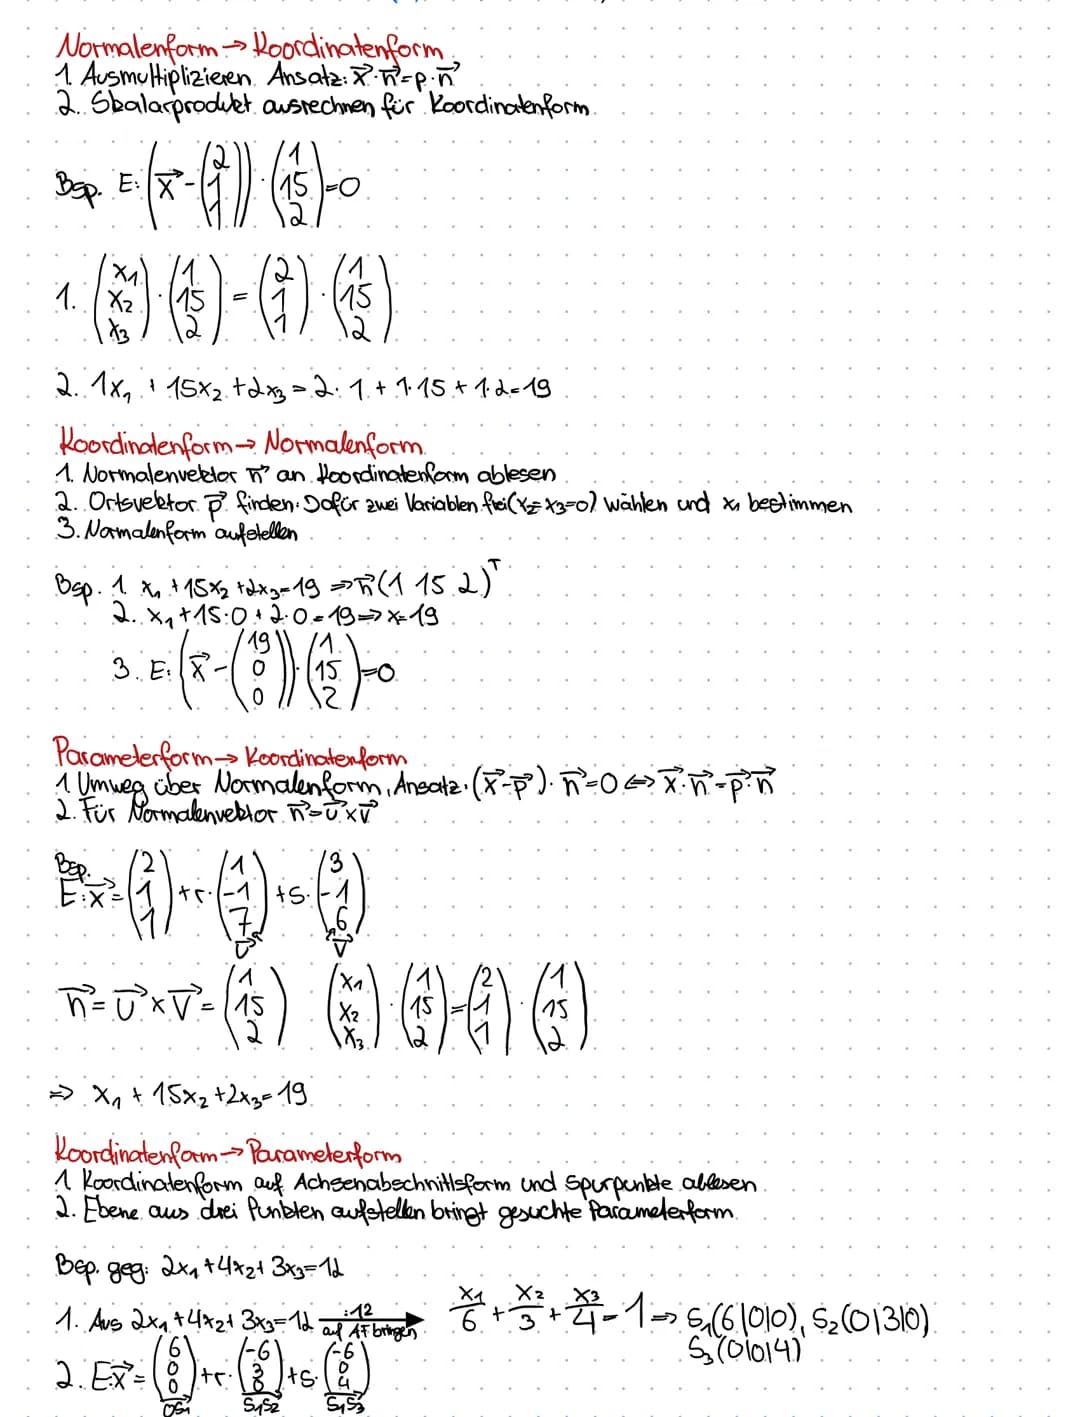 Normalenform → Koordinatenform
1. Ausmultiplizieren. Ansatz: x⃗·n⃗=p·n⃗
2. Skalarprodukt ausrechnen für Koordinatenform
Bsp. E: (x⃗ - (2 1 1)) · (1 15 2) = 0
1. (x₁ x₂ x₃) · (1 15 2) = (2 1 1) · (1 15 2)
2. 1x₁ + 15x₂ + 2x₃ = 2·1 + 1·15 + 1·2 = 19
Koordinatenform → Normalenform
1. Normalenvektor n⃗ an Koordinatenform ablesen
2. Ortsvektor p⃗ finden. Dafür zwei Variablen frei (x₂=x₃=0) wählen und x₁ bestimmen
3. Normalenform aufstellen
Bsp. 1. x₁ + 15x₂ + 2x₃ = 19 ⇒ n⃗ (1 15 2)ᵀ
2. x₁ + 15·0 + 2·0 = 19 ⇒ x=19
3. E: (x⃗ - (19 0 0)) · (1 15 2) = 0
Parameterform → Koordinatenform
1. Umweg über Normalenform, Ansatz: (x⃗-p⃗)·n⃗=0 ⇔ x⃗·n⃗=p⃗·n⃗
2. Für Normalenvektor n⃗=u⃗×v⃗
Bsp.
E: x⃗ = (2 1 1) + r·(1 -1 7) + s·(3 -1 6)
u⃗ v⃗
n⃗ = u⃗ × v⃗ = (1 15 2) (x₁ x₂ x₃) · (1 15 2) = (2 1 1) · (1 15 2)
⇒ x₁ + 15x₂ + 2x₃ = 19
Koordinatenform → Parameterform
1. Koordinatenform auf Achsenabschnittsform und Spurpunkte ablesen
2. Ebene aus drei Punkten aufstellen bringt gesuchte Parameterform
Bsp. geg: 2x₁ + 4x₂ + 3x₃ = 12
1. Aus 2x₁ + 4x₂ + 3x₃ = 12 :12 auf AF bringen → x₁/6 + x₂/3 + x₃/4 = 1 ⇒ S₁(6|0|0), S₂(0|3|0)
S₃(0|0|4)
2. E: x⃗ = (6 0 0) + r·(-6 3 0) + s·(-6 0 4)
OS₁ S₁S₂ S₁S₃